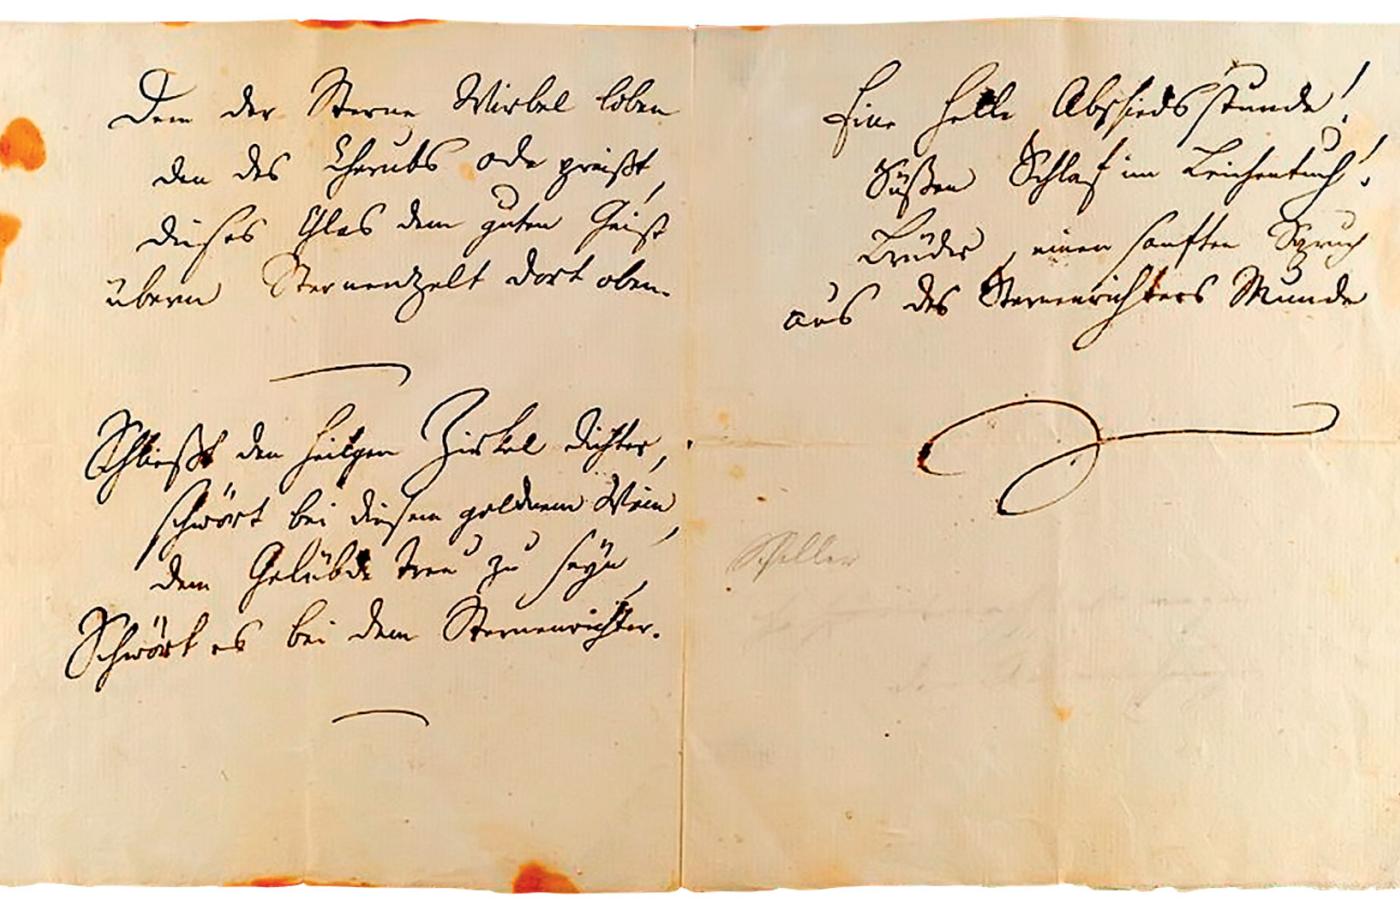 Dem der Sterne Wirbel loben
den des Cherubs ode preißt,
dieses Glas dem guten Geist
übern Sternenzelt dort oben.
Schließt den heilgen Zirkel dichter,
schwört bei diesem goldnem Wein,
dem Gelübde treu zu seyn,
Schwört es bei dem Sternenrichter.
Eine helle Abschiedsstunde!
Süßen Schlaf im Leichentuch!
Brüder, einen sanften Spruch
aus des Sternenrichters Munde
Schiller